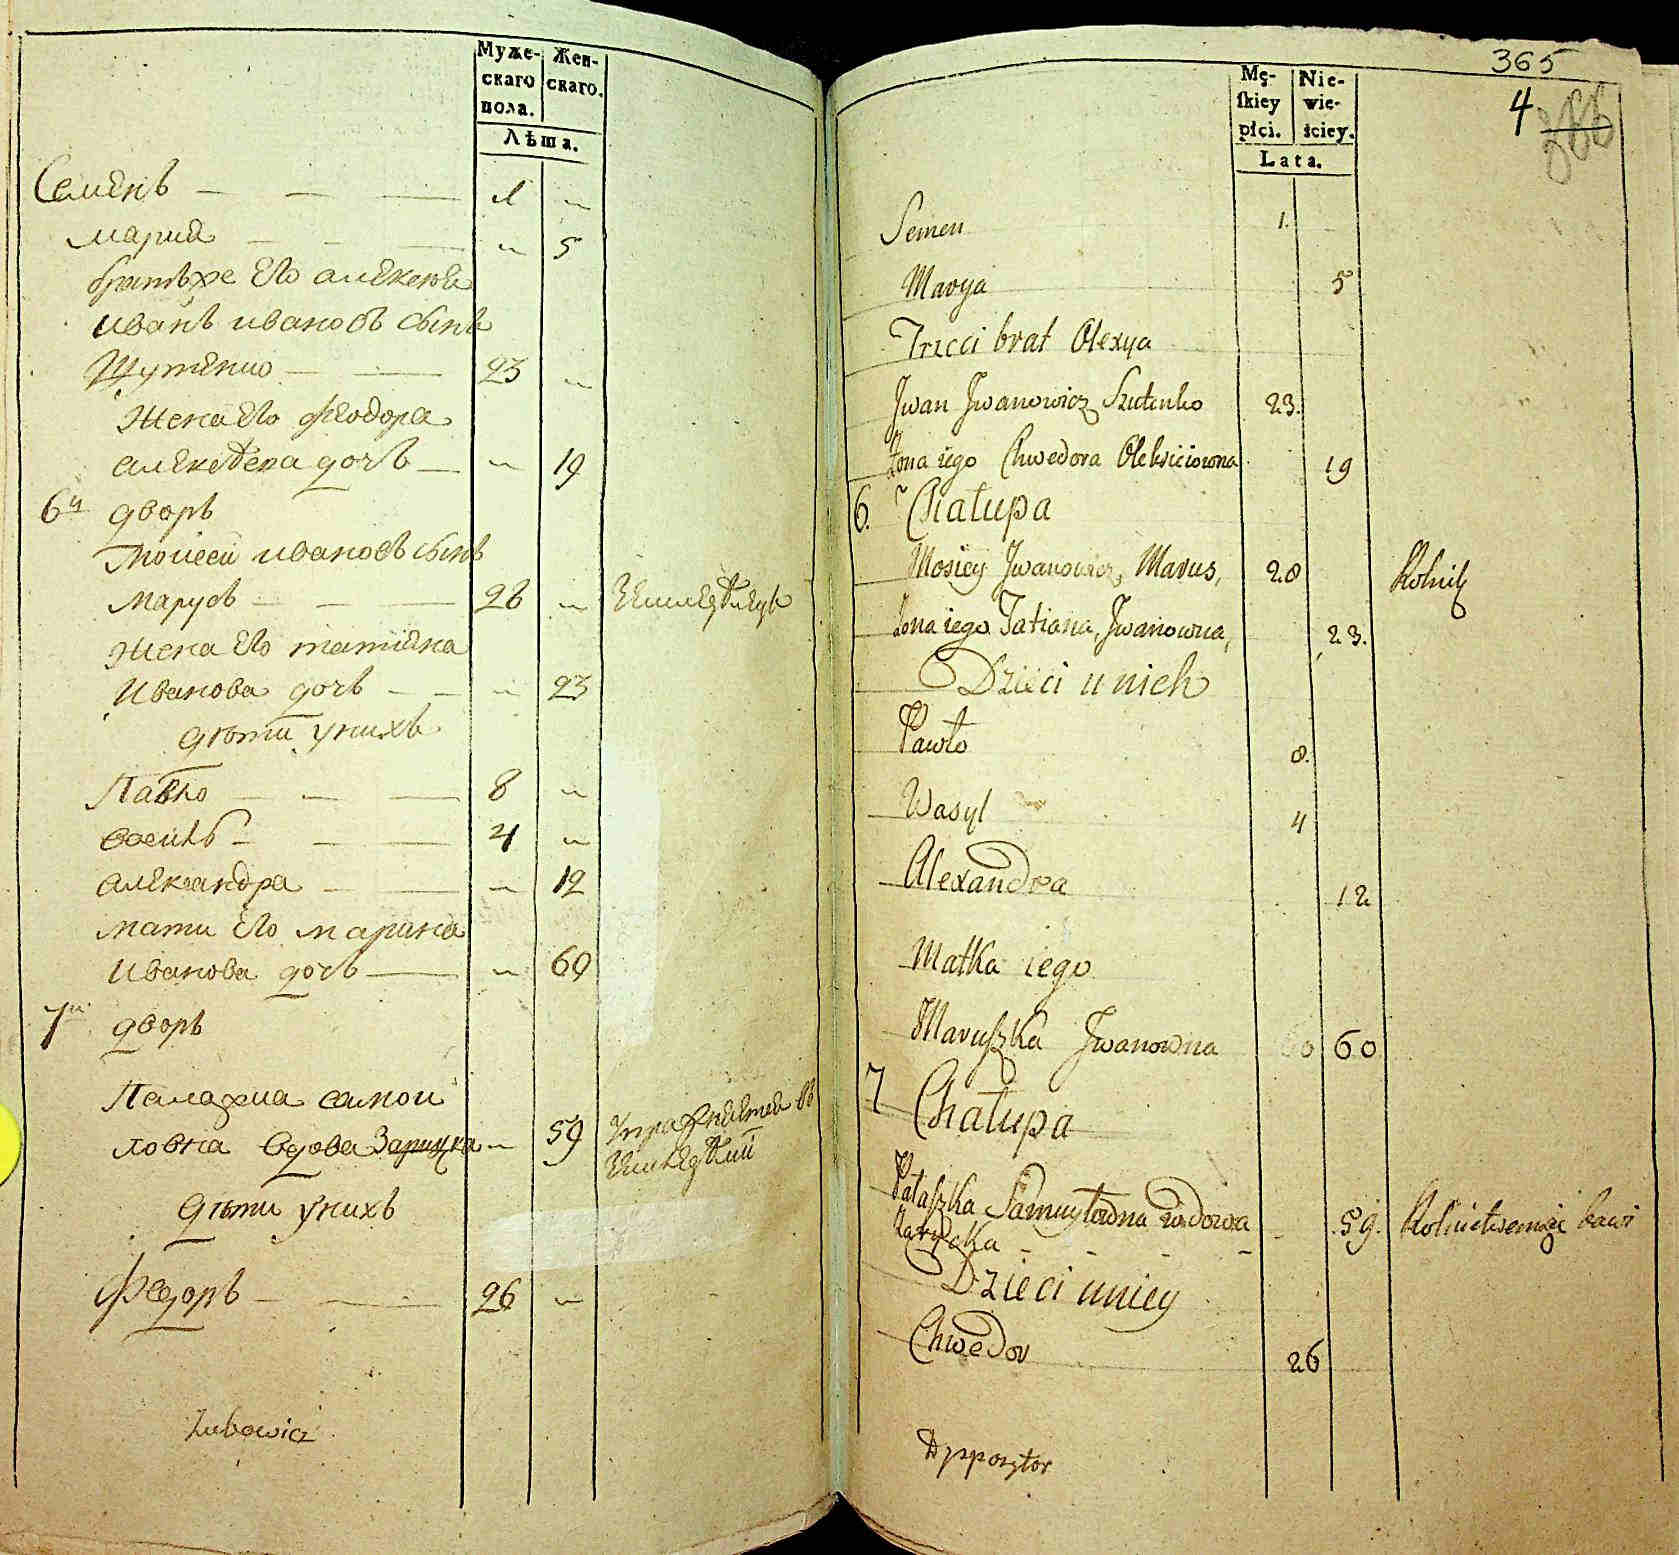 Муже-
скаго
пола.
Жен-
скаго.
Лѣта.
Семенъ 1
Мария 5
братъже Его алексея
Иванъ ивановъ сынъ
Шутенко 23
Жена Его феодора
алексѣева дочь 19
6й дворъ
Мойсей ивановъ сынъ
Марусъ 28 Земледѣлецъ
Жена Его татияна
Иванова дочь 23
дѣти унихъ
Павло 8
василь 4
александра 12
мати Его марина
Иванова дочь 60
7й дворъ
Палажка самой
ловна вдова Зарицка 59
дѣти унихъ
Федоръ 26
Zubowicz
365
4
366
Mę-
skiey
płci.
Nie-
wie-
ściey.
Lata.
Semen 1.
Marya 5
Trzeci brat Olexya
Jwan Jwanowicz Szutenko 23.
Żona iego Chwedora Oleksiiowna 19
6. Chałupa
Mosiey Jwanowicz, Marus, 28 Rolnik
Żona iego Tatiana, Jwanowna, 23.
Dzieci u nich
Pawło 8.
Wasyl 4
Alexandra 12
Matka iego
Maruszka Jwanowna 60
7 Chałupa
Pałaszka Samuyłowna wdowa
Zarycka 59. Rolnictwem się bawi
Dzieci u niey
Chwedor 26